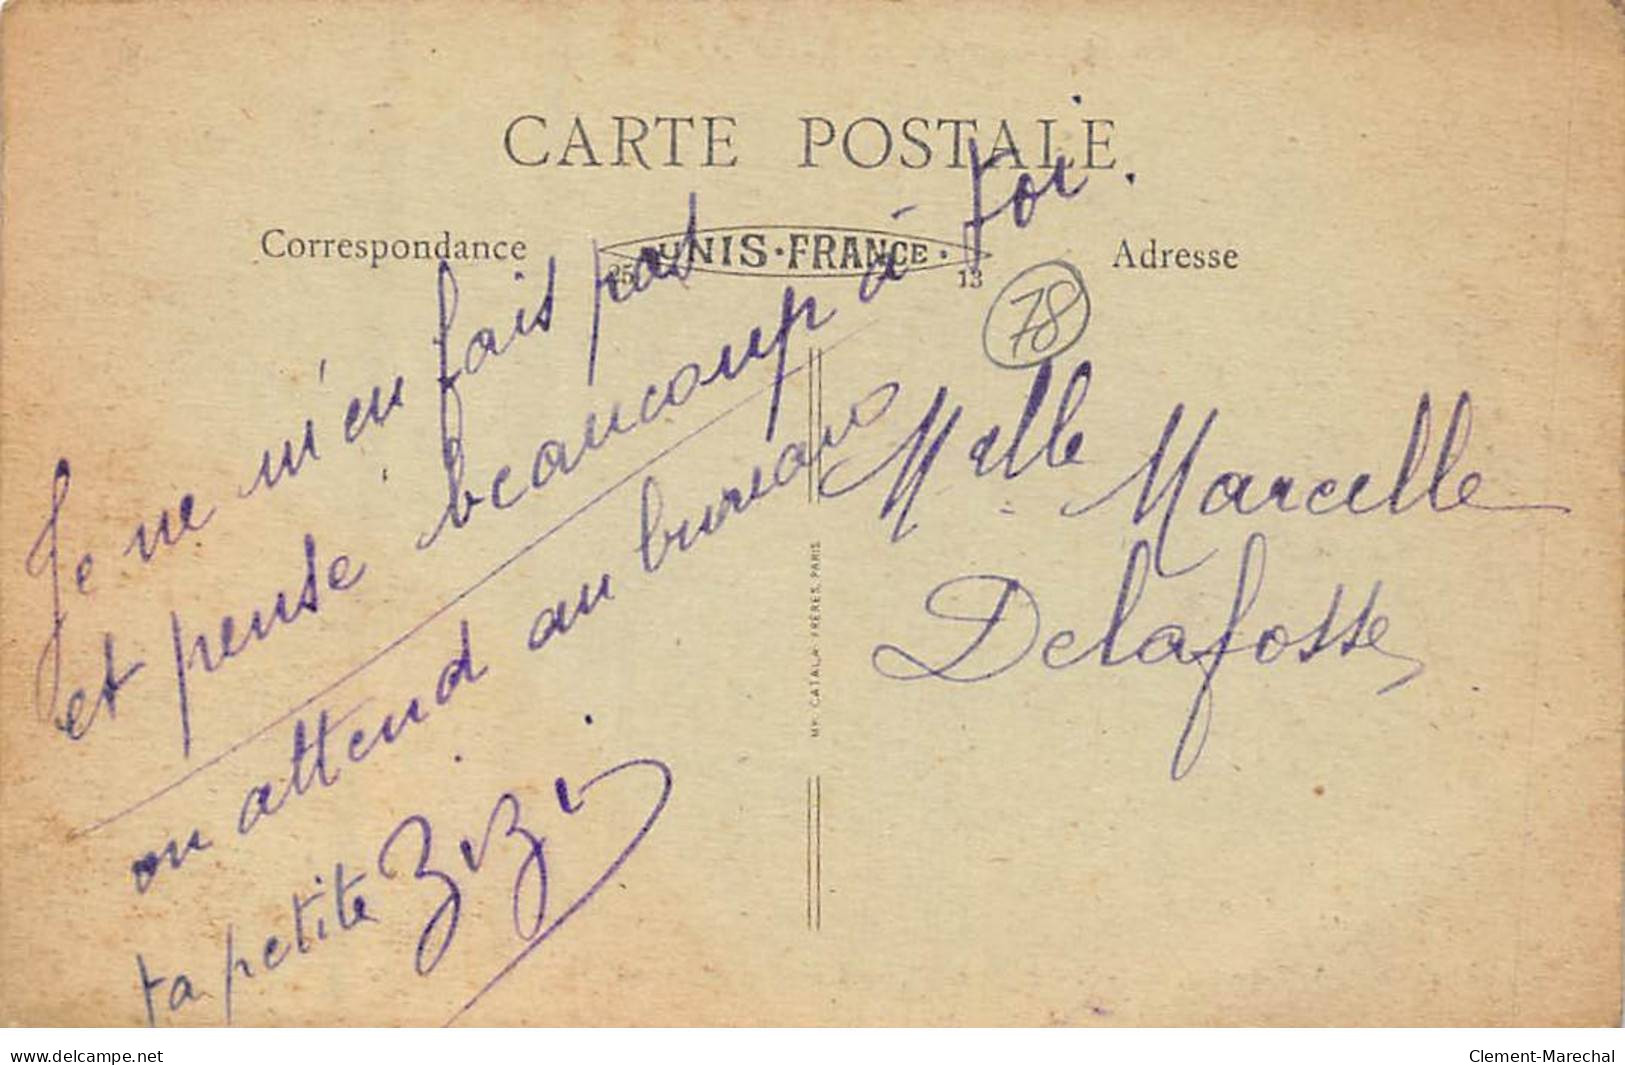 CARTE POSTALE
Correspondance
UNIS-FRANCE
25
13
Adresse
78
Je ne m'en fais pas
et pense beaucoup à toi.
on attend au bureau
ta petite Zizi
Melle Marcelle
Delafosse
MK. CATALA FRÈRES, PARIS
www.delcampe.net
Clement-Marechal